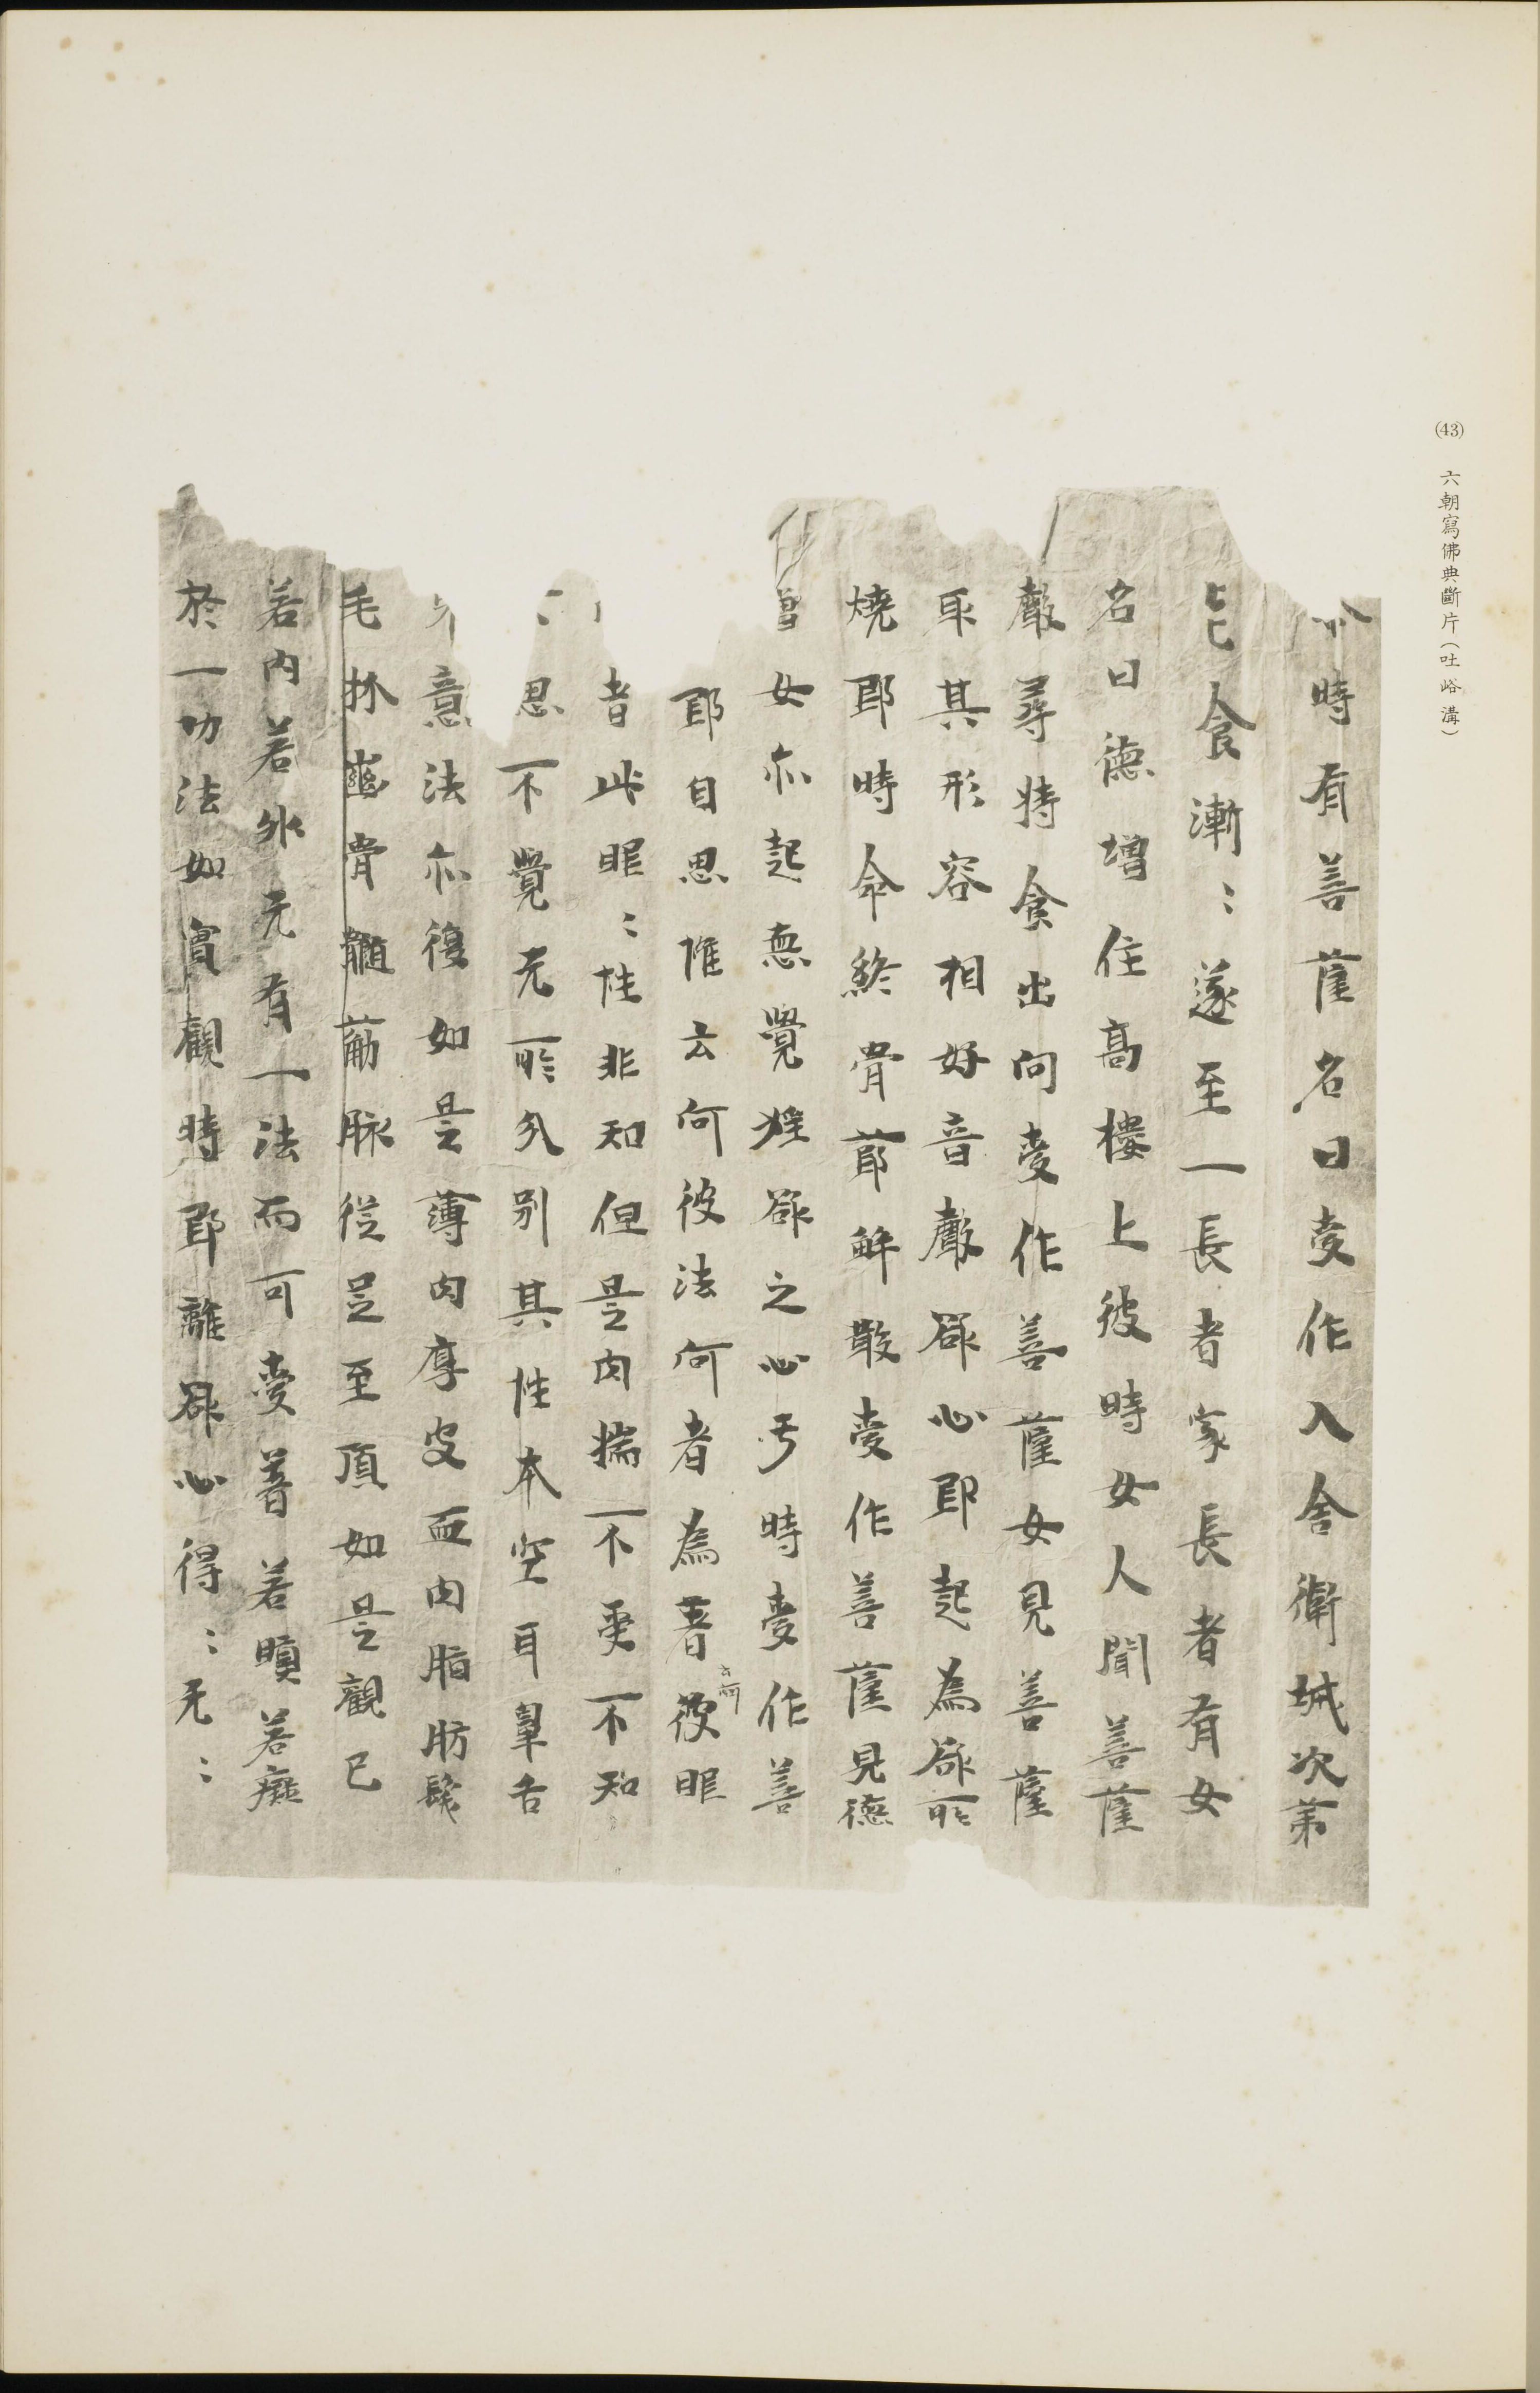 (43) 六朝寫佛典斷片（吐峪溝）
尒時有菩薩名曰愛作入舍衛城次第
乞食漸〻遂至一長者家長者有女
名曰德增住高樓上彼時女人聞菩薩
聲尋持食出向愛作菩薩女見菩薩
取其形容相好音聲欲心即起為欲所
燒即時命終骨節解散愛作菩薩見德
增女亦起惡覺婬欲之心尒時愛作菩
即自思惟云何彼法何者為著云何彼眼
者此眼〻性非知但是肉揣不愛不知
思不覺无所分別其性本空耳鼻舌
意法亦復如是薄肉厚皮血肉脂肪髮
毛㧊齒骨髓筋脉從足至頂如是觀已
若內若外无有一法而可愛著若瞋若癡
於一切法如實觀時即離欲心得〻无〻